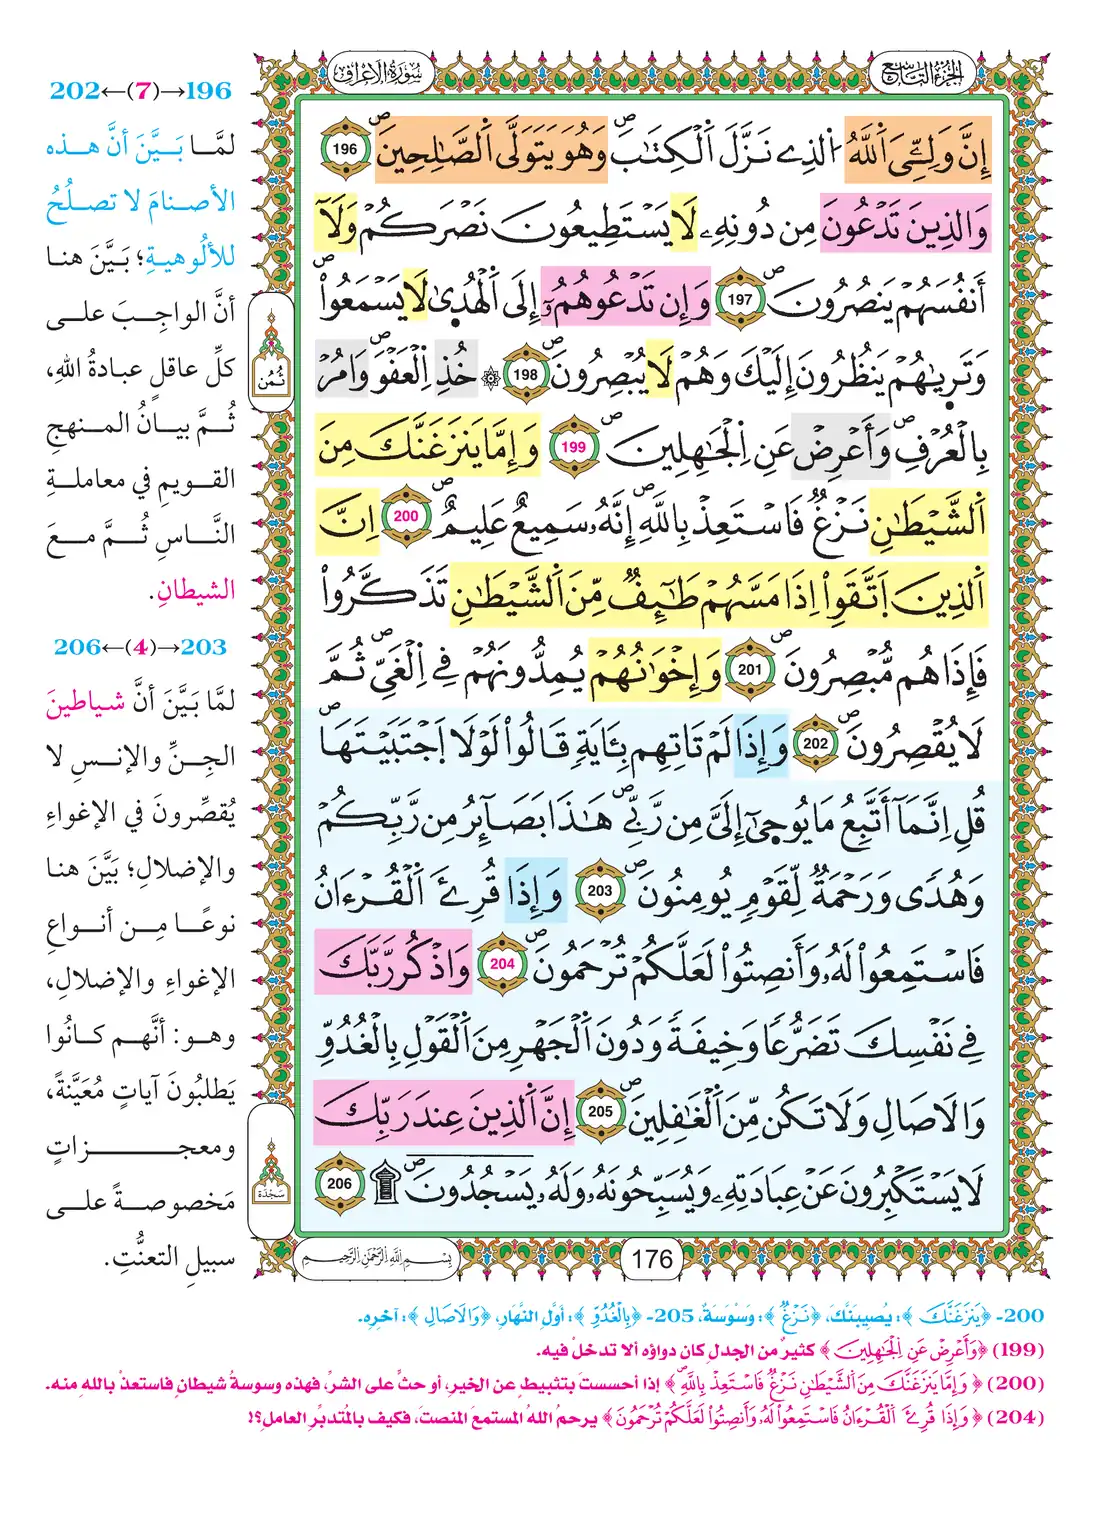 سُورَةُ الْاَعْرَافِ
الجُزْءُ التَّاسِعُ
إِنَّ وَلِـِّۧىَ اَ۬للَّهُ اُ۬لذِے نَزَّلَ اَ۬لْكِتَٰبَۖ وَهُوَ يَتَوَلَّى اَ۬لصَّٰلِحِينَۖ 196
وَالذِينَ تَدْعُونَ مِن دُونِهِۦ لَا يَسْتَطِيعُونَ نَصْرَكُمْ وَلَآ
أَنفُسَهُمْ يَنصُرُونَۖ 197 وَإِن تَدْعُوهُمُۥٓ إِلَى اَ۬لْهُدَىٰ لَا يَسْمَعُواْۖ
وَتَر۪ىٰهُمْ يَنظُرُونَ إِلَيْكَ وَهُمْ لَا يُبْصِرُونَۖ 198 ۞ خُذِ اِ۬لْعَفْوَۖ وَامُرْ
بِالْعُرْفِۖ وَأَعْرِضْ عَنِ اِ۬لْجَٰهِلِينَۖ 199 وَإِمَّا يَنزَغَنَّكَ مَِنَ
اَ۬لشَّيْطَٰنِ نَزْغٌ فَاسْتَعِذْ بِاللَّهِۖ إِنَّهُۥ سَمِيعٌ عَلِيمٌۖ 200 اِنَّ
اَ۬لذِينَ اَ۪تَّقَوِاْ اِذَا مَسَّهُمْ طَٰٓئِفٌ مِّنَ اَ۬لشَّيْطَٰنِ تَذَكَّرُواْ
فَإِذَا هُم مُّبْصِرُونَۖ 201 وَإِخْوَٰنُهُمْ يُمِدُّونَهُمْ فِے اِ۬لْغَيِّۖ ثُمَّ
لَا يُقْصِرُونَۖ 202 وَإِذَا لَمْ تَاتِهِم بِـَٔايَةٍ قَالُواْ لَوْلَا اَ۪جْتَبَيْتَهَاۖ
قُلِ اِنَّمَآ أَتَّبِعُ مَا يُوح۪ىٰٓ إِلَىَّ مِن رَّبِّےۖ هَٰذَا بَصَآئِرُ مِن رَّبِّكُمْ
وَهُدًى وَرَحْمَةٌ لِّقَوْمٍ يُومِنُونَۖ 203 وَإِذَا قُرِۓَ اَ۬لْقُرْءَانُ
فَاسْتَمِعُواْ لَهُۥ وَأَنصِتُواْ لَعَلَّكُمْ تُرْحَمُونَۖ 204 وَاذْكُر رَّبَّكَ
فِے نَفْسِكَ تَضَرُّعًا وَخِيفَةً وَدُونَ اَ۬لْجَهْرِ مِنَ اَ۬لْقَوْلِ بِالْغُدُوِّ
وَالَاصَالِ وَلَا تَكُن مِّنَ اَ۬لْغَٰفِلِينَۖ 205 إِنَّ اَ۬لذِينَ عِندَ رَبِّكَ
لَا يَسْتَكْبِرُونَ عَنْ عِبَادَتِهِۦ وَيُسَبِّحُونَهُۥ وَلَهُۥ يَسْجُدُونَۖ ۩ 206
ثُمُن
سَجْدَة
بِسْمِ اللَّهِ الرَّحْمَٰنِ الرَّحِيمِ
176
196→(7)←202
لمَّـا بَـيَّنَ أنَّ هـذه
الأصـنامَ لا تصـلُحُ
للألُوهيـةِ؛ بَـيَّنَ هنـا
أنَّ الواجِـبَ علـى
كلِّ عاقلٍ عبادةُ اللهِ،
ثُـمَّ بيـانُ المـنهجِ
القـويمِ في معاملـةِ
النَّـاسِ ثُـمَّ مـعَ
الشيطانِ.
203→(4)←206
لمَّا بَيَّنَ أنَّ شياطينَ
الجِـنِّ والإنـسِ لا
يُقصِّرونَ في الإغواءِ
والإضلالِ؛ بَيَّنَ هنا
نوعًـا مِـن أنـواعِ
الإغواءِ والإضلالِ،
وهـو: أنَّهـم كـانُوا
يَطلبُونَ آياتٍ مُعَيَّنةً،
ومعجـزاتٍ
مَخصُوصـةً علـى
سبيلِ التعنُّتِ.
200- ﴿يَنزَغَنَّكَ﴾: يُصِيبَنَّكَ، ﴿نَزْغٌ﴾: وَسْوَسَةٌ، 205- ﴿بِالْغُدُوِّ﴾: أوَّلِ النَّهَارِ، ﴿وَالَاصَالِ﴾: آخرِهِ.
(199) ﴿وَأَعْرِضْ عَنِ اِ۬لْجَٰهِلِينَ﴾ كثيرٌ من الجدلِ كان دواؤه ألا تدخلْ فيه.
(200) ﴿وَإِمَّا يَنزَغَنَّكَ مِنَ اَ۬لشَّيْطَٰنِ نَزْغٌ فَاسْتَعِذْ بِاللَّهِۖ﴾ إذا أحسستَ بتثبيطٍ عن الخيرِ، أو حثٍّ على الشرِّ، فهذه وسوسةُ شيطانٍ فاستعذْ باللهِ منه.
(204) ﴿وَإِذَا قُرِۓَ اَ۬لْقُرْءَانُ فَاسْتَمِعُواْ لَهُۥ وَأَنصِتُواْ لَعَلَّكُمْ تُرْحَمُونَ﴾ يرحمُ اللهُ المستمعَ المنصتَ، فكيف بالمُتدبِّرِ العاملِ؟!